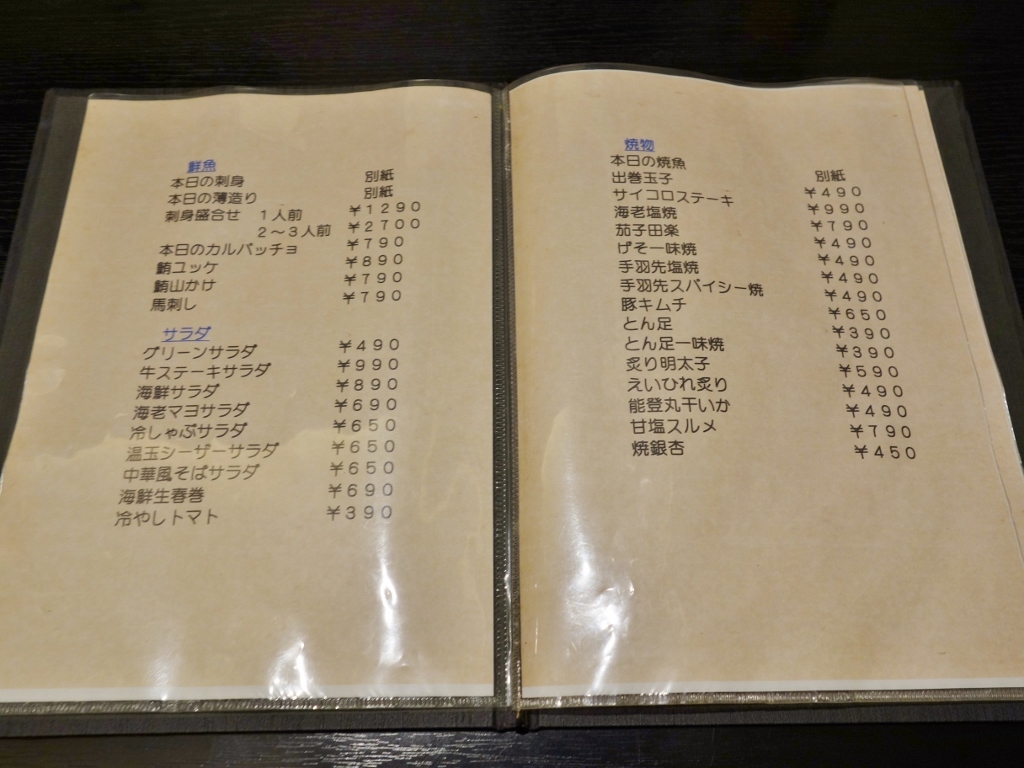 鮮魚
本日の刺身 別紙
本日の薄造り 別紙
刺身盛合せ １人前 ￥１２９０
２～３人前 ￥２７００
本日のカルパッチョ ￥７９０
鮪ユッケ ￥８９０
鮪山かけ ￥７９０
馬刺し ￥７９０
サラダ
グリーンサラダ ￥４９０
牛ステーキサラダ ￥９９０
海鮮サラダ ￥８９０
海老マヨサラダ ￥６９０
冷しゃぶサラダ ￥６５０
温玉シーザーサラダ ￥６５０
中華風そばサラダ ￥６５０
海鮮生春巻 ￥６９０
冷やしトマト ￥３９０
焼物
本日の焼魚 別紙
出巻玉子 ￥４９０
サイコロステーキ ￥９９０
海老塩焼 ￥７９０
茄子田楽 ￥４９０
げそ一味焼 ￥４９０
手羽先塩焼 ￥４９０
手羽先スパイシー焼 ￥４９０
豚キムチ ￥６５０
とん足 ￥３９０
とん足一味焼 ￥３９０
炙り明太子 ￥５９０
えいひれ炙り ￥４９０
能登丸干いか ￥４９０
甘塩スルメ ￥７９０
焼銀杏 ￥４５０